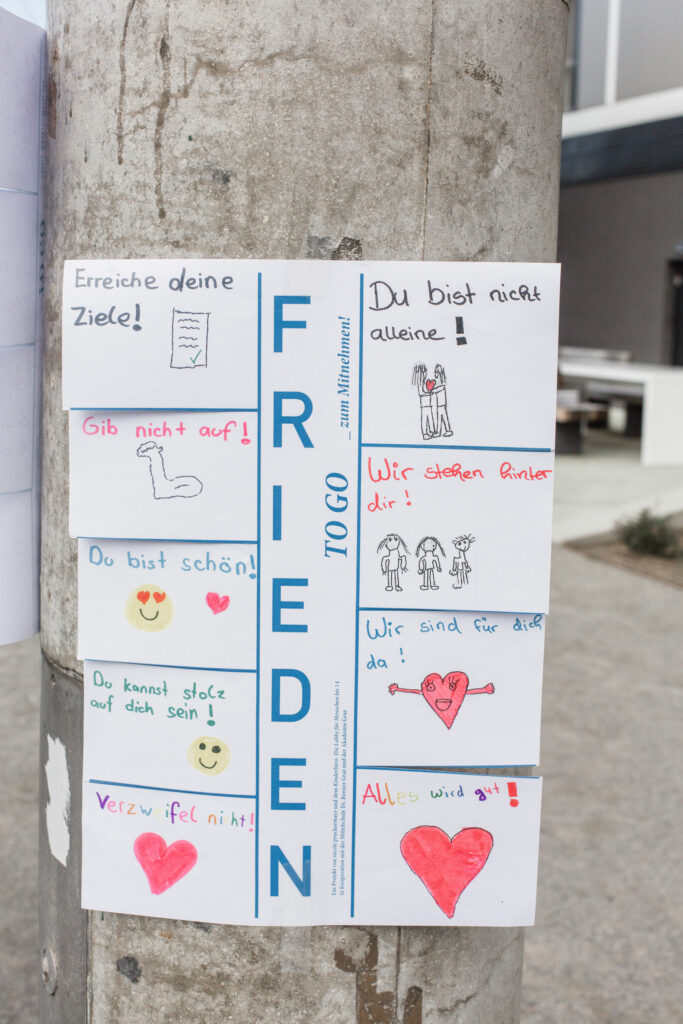 Erreiche deine
Ziele!
Gib nicht auf!
Du bist schön!
Du kannst stolz
auf dich sein!
Verzweifel nicht!
FRIEDEN
TO GO
_ zum Mitnehmen!
Ein Projekt von nicole pruckermayr und dem Kinderbüro - Die Lobby für Menschen bis 14
in Kooperation mit der Mittelschule Dr. Renner Graz und der Akademie Graz
Du bist nicht
alleine!
Wir stehen hinter
dir!
Wir sind für dich
da!
Alles wird gut!